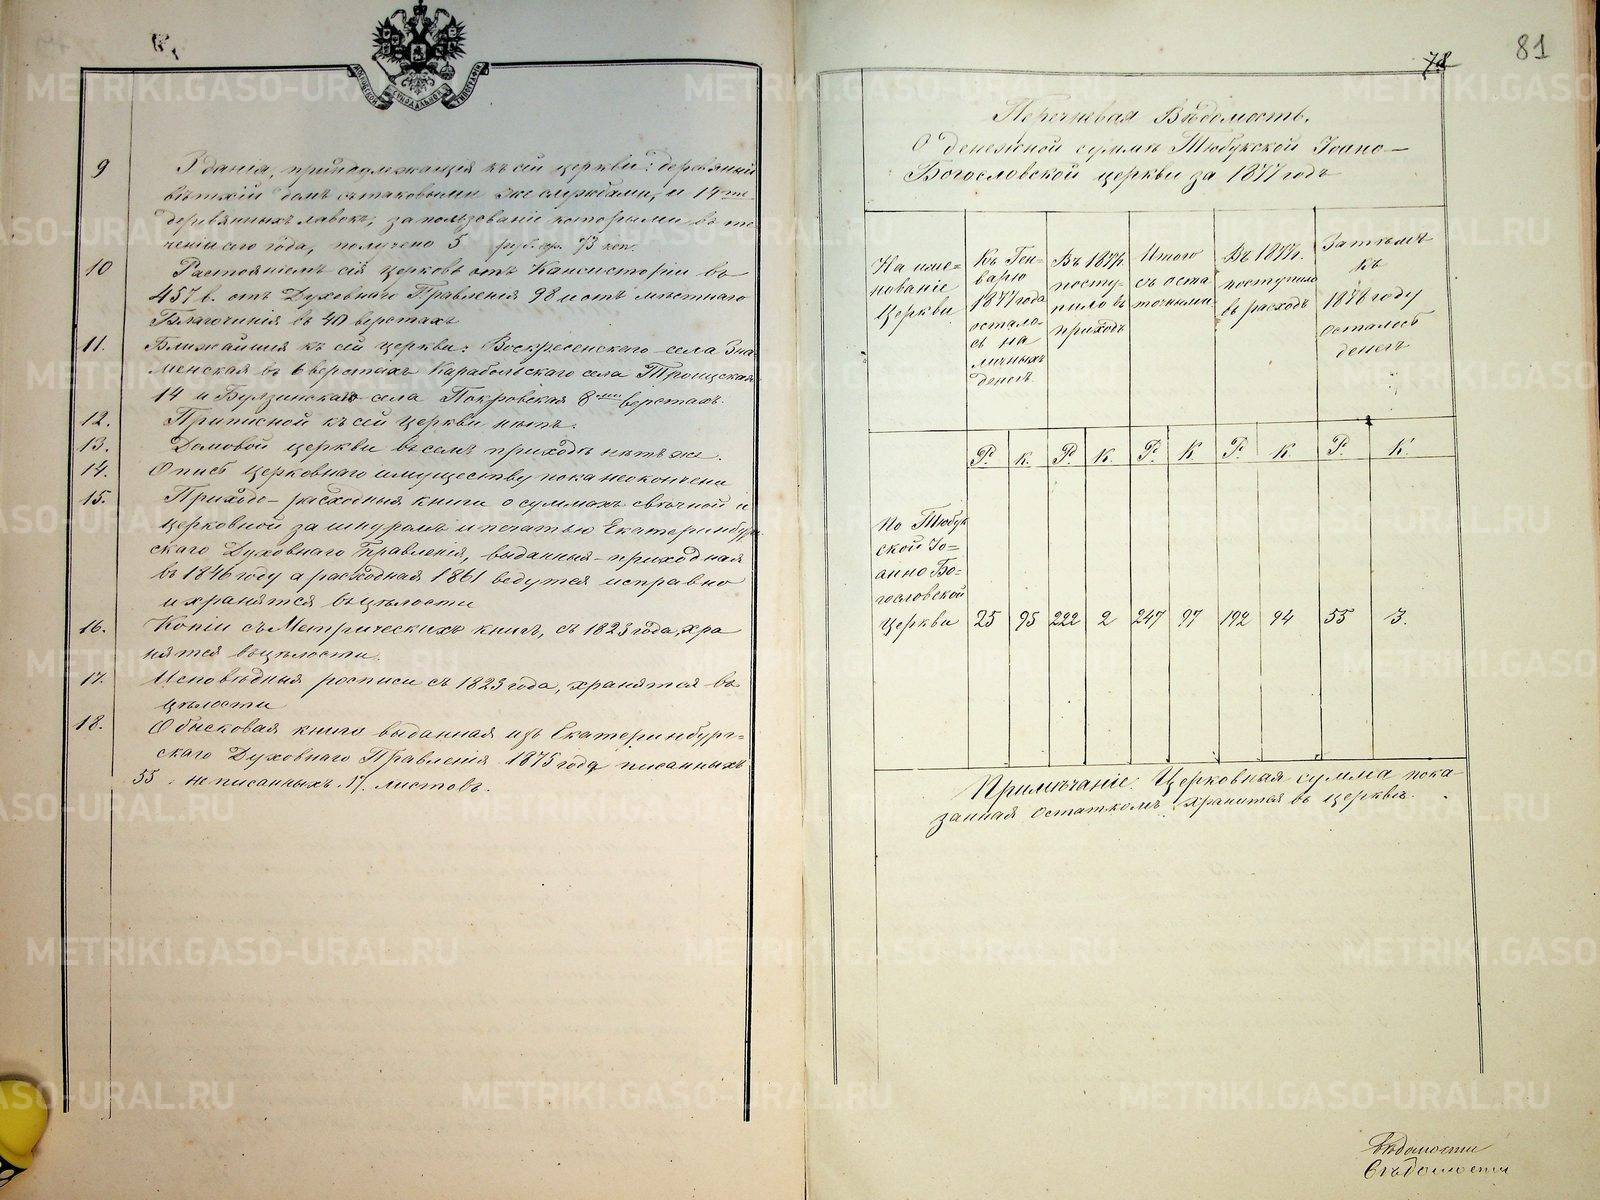 81
9 Зданія, принадлежащія къ сей церкви: деревянный
вѣтхій домъ съ таковыми же службами, и 14ть
деревянныхъ лавокъ, за пользованіе которыми въ те
ченіи сего года, получено 5 руб. ср. 73 коп.
10 Разтояніемъ сія церковь отъ Кансисторіи въ
457 в. отъ Духовнаго Правленія 98 и отъ мѣстнаго
Благочинія въ 40 верстахъ
11. Ближайшія къ сей церкви: Воскресенскаго села Зна
менская въ 6 верстахъ Карабольскаго села Троицская
14 и Булзинскаго села Покровская 8ми верстахъ.
12. Приписной къ сей церкви нѣтъ.
13. Домовой церкви въ семъ приходѣ нѣтъ же.
14. Опись церковнаго имуществу пока неокончена
15. Приходо-расходныя книги о суммахъ свѣчной и
церковной за шнуромъ и печатью Екатеринбур
скаго Духовнаго Правленія, выданныя - приходная
въ 1846 году а расходная 1861 ведутся исправно
и хранятся въ цѣлости
16. Копіи съ Метрическихъ книгъ, съ 1823 года, хра
нятся въ цѣлости.
17. Исповѣдныя росписи съ 1823 года, хранятся въ
цѣлости
18. Обысковая книга выданная изъ Екатеринбург=
скаго Духовнаго Правленія 1875 года писанныхъ
55. не писанныхъ 17 листовъ.
Перечневая Вѣдомость.
О денежной суммѣ Тюбукской Іоано-
Богословской церкви за 1877 годъ
На име=
нованіе
церкви
Къ Ген-
варю
1877 года
остало-
сь на
личныхъ
денегъ.
Въ 1877 г.
посту-
пило въ
приходъ
Итого
съ оста
точными
Въ 1877 г.
поступило
въ расходъ
Затѣмъ
къ
1878 году
осталось
денегъ
Р. К. Р. К. Р. К. Р. К. Р. К.
По Тюбук
ской Іо=
анно Бо-
гословской
церкви 25 95 222 2 247 97 192 94 55 3.
Примѣчаніе: Церковная сумма пока-
занная остаткомъ хранится въ церквѣ.
Вѣдомости
METRIKI.GASO-URAL.RU